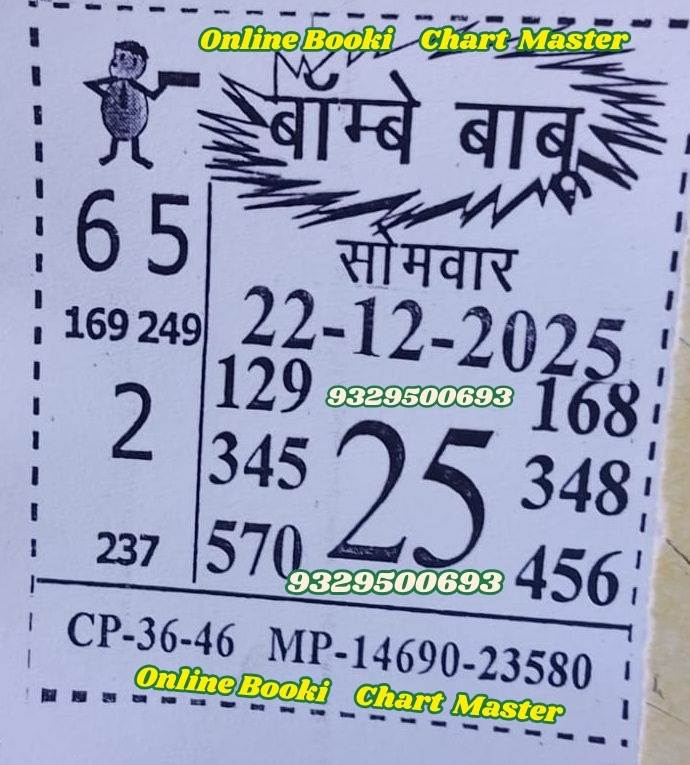 Online Booki Chart Master
बॉम्बे बाबू
6 5
सोमवार
169 249
22-12-2025
129
9329500693
168
2
345
25
348
237
570
9329500693
456
CP-36-46 MP-14690-23580
Online Booki Chart Master